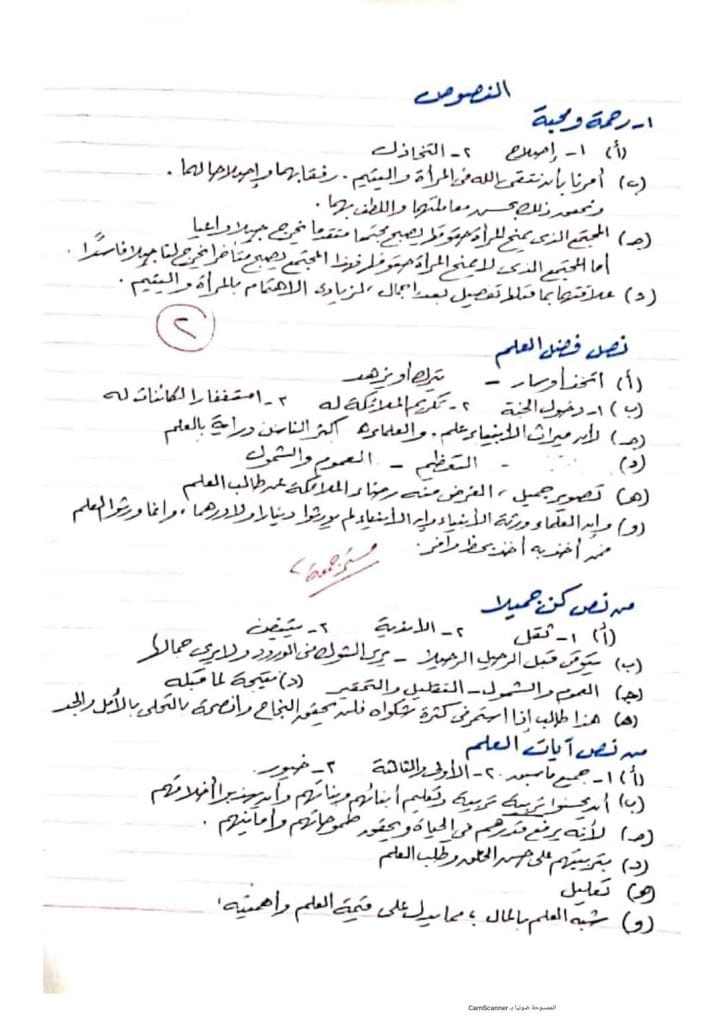 النصوص
١- رحمة ومحبة
(أ) ١- إصلاح ٢- التخاذل
(ب) أمرنا بأن نتقى الله فى المرأة واليتيم. رفقا بهما وإصلاحا لهما.
ونحقق ذلك بحسن معاملتهما واللطف بهما.
(جـ) المجتمع الذى يمنح المرأة حقوقها يصبح مجتمعا متقدما يخرج جيلا واعيا
أما المجتمع الذى لا يمنح المرأة حقوقها فهذا المجتمع يصبح متأخرا يخرج لنا جيلا فاسدًا.
(د) علاقتها بما قبلها تفصيل بعد إجمال، لزيادة الاهتمام بالمرأة واليتيم.
٢
نص فضل العلم
(أ) اتخذ أو سار - يترك أو يزهد
(ب) ١- دخول الجنة ٢- تكريم الملائكة له ٣- استغفار الكائنات له
(جـ) لأن ميراث الأنبياء علم. والعلماء أكثر الناس دراية بالعلم
(د) - التعظيم - العموم والشمول
(هـ) تصوير جميل، الغرض منه رضاء الملائكة عن طالب العلم
(و) وإن العلماء ورثة الأنبياء وإن الأنبياء لم يورثوا دينارا ولا درهما، وإنما ورثوا العلم
فمن أخذ به أخذ بحظ وافر.
من نص كن جميلا
(أ) ١- ثقل ٢- الأندية ٣- يتيقن
(ب) يتوقى قبل الرحيل الرحيلا - يرى الشوك فى الورود ولا يرى جمالها
(جـ) العموم والشمول - التقليل والتحقير (د) نتيجة لما قبله
(هـ) هذا طالب إذا استمر فى كثرة شكواه فلن يحقق النجاح وأنصحه بالتحلى بالأمل والجد
من نص آيات العلم
(أ) ١- جميع ما سبق ٢- الأولى والثالثة ٣- خيور.
(ب) أن يحسنوا تربية تربية وتعليم أبنائهم وبناتهم وأن يهذبوا أخلاقهم
(جـ) لأنه يرفع قدرهم فى الحياة ويحقق طموحاتهم وأمانيهم.
(د) بتربيتهم على حسن الخلق وطلب العلم
(هـ) تعليل
(و) شبه العلم بالمال، مما يدل على قيمة العلم وأهميته.
الممسوحة ضوئيا بـ CamScanner